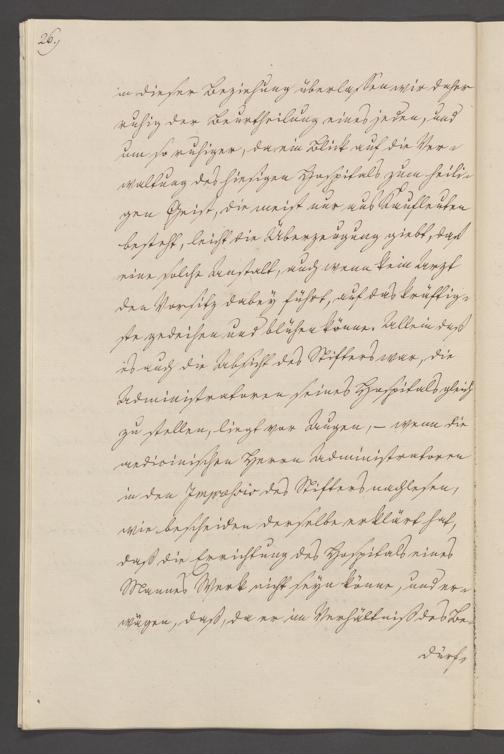 26.)
in dieser Beziehung überlassen wir daher
ruhig der Beurtheilung eines jeden, und
um so ruhiger, da ein Blick auf die Ver-
waltung des hiesigen Hospitals zum heili-
gen Geist, die meist nur aus Kaufleuten
besteht, leicht die Überzeugung giebt, daß
eine solche Anstalt, auch wenn kein Arzt
den Vorsitz dabey führt, auf das kräftig-
ste gedeihen und blühen könne. Allein daß
es auch die Absicht des Stifters war, die
Administratoren seines Hospitals gleich
zu stellen, liegt vor Augen, – wenn die
medicinischen Herren Administratoren
in den des Stifters nachlesen,
wie bescheiden derselbe erklärt hat,
daß die Errichtung des Hospitals eines
Mannes Werk nicht seyn könne, und er-
wägen, daß, da er im Verhältniß des Be-
dürf-